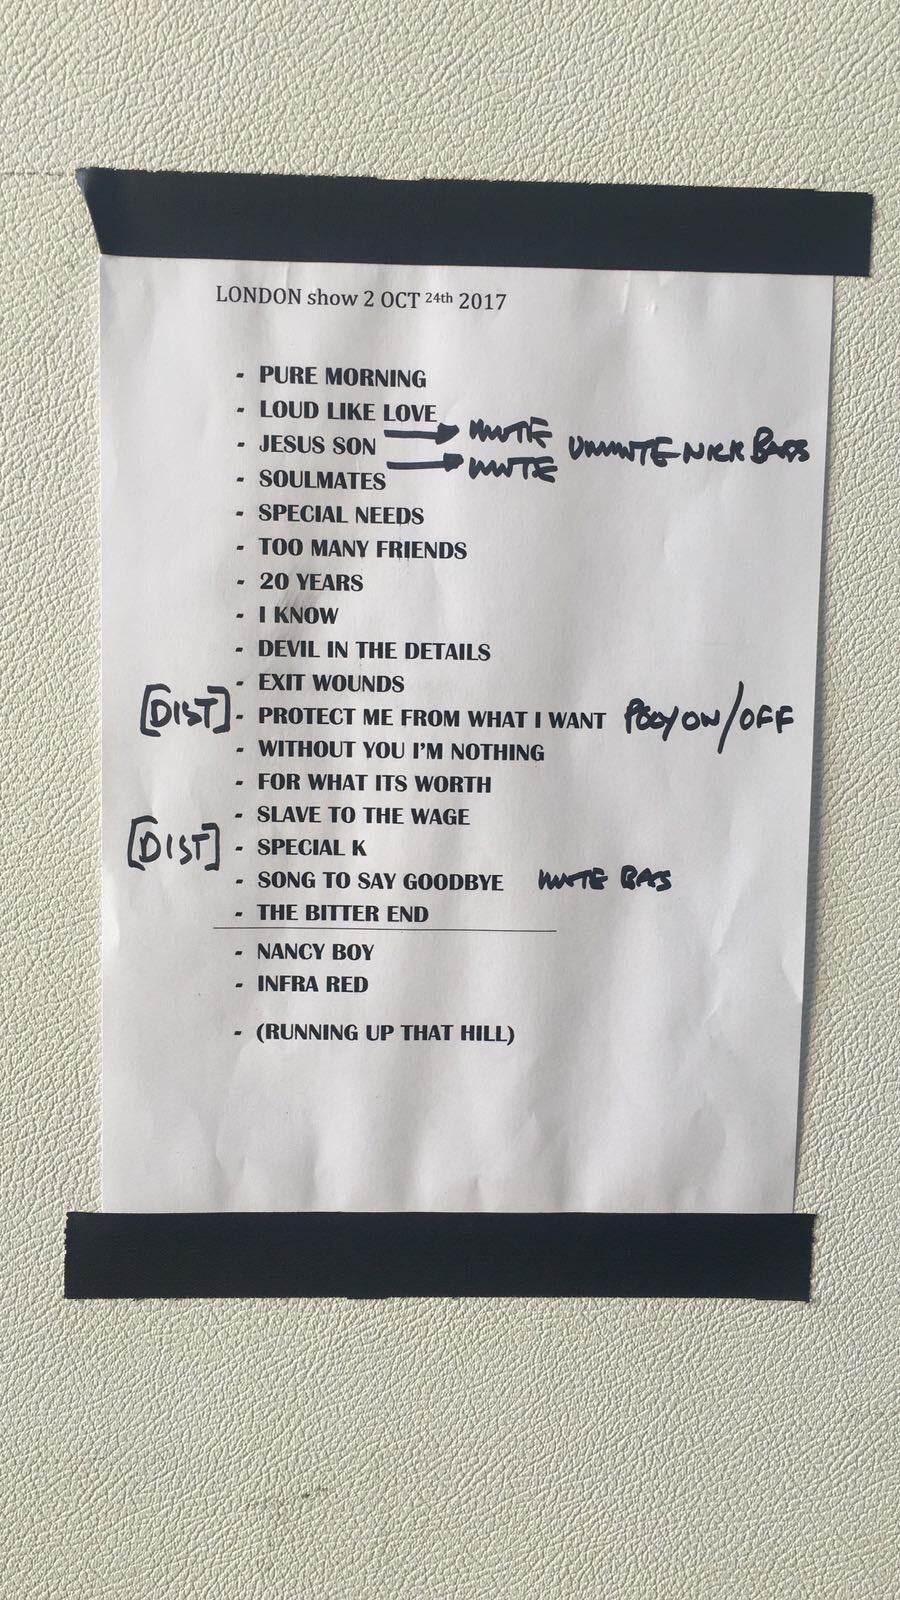 LONDON show 2 OCT 24th 2017
- PURE MORNING
- LOUD LIKE LOVE
→ MUTE
- JESUS SON
UNMUTE NICK BASS
→ MUTE
- SOULMATES
- SPECIAL NEEDS
- TOO MANY FRIENDS
- 20 YEARS
- I KNOW
- DEVIL IN THE DETAILS
- EXIT WOUNDS
[DIST] - PROTECT ME FROM WHAT I WANT ON/OFF
- WITHOUT YOU I'M NOTHING
- FOR WHAT ITS WORTH
- SLAVE TO THE WAGE
[DIST] - SPECIAL K
- SONG TO SAY GOODBYE MUTE BASS
- THE BITTER END
- NANCY BOY
- INFRA RED
- (RUNNING UP THAT HILL)